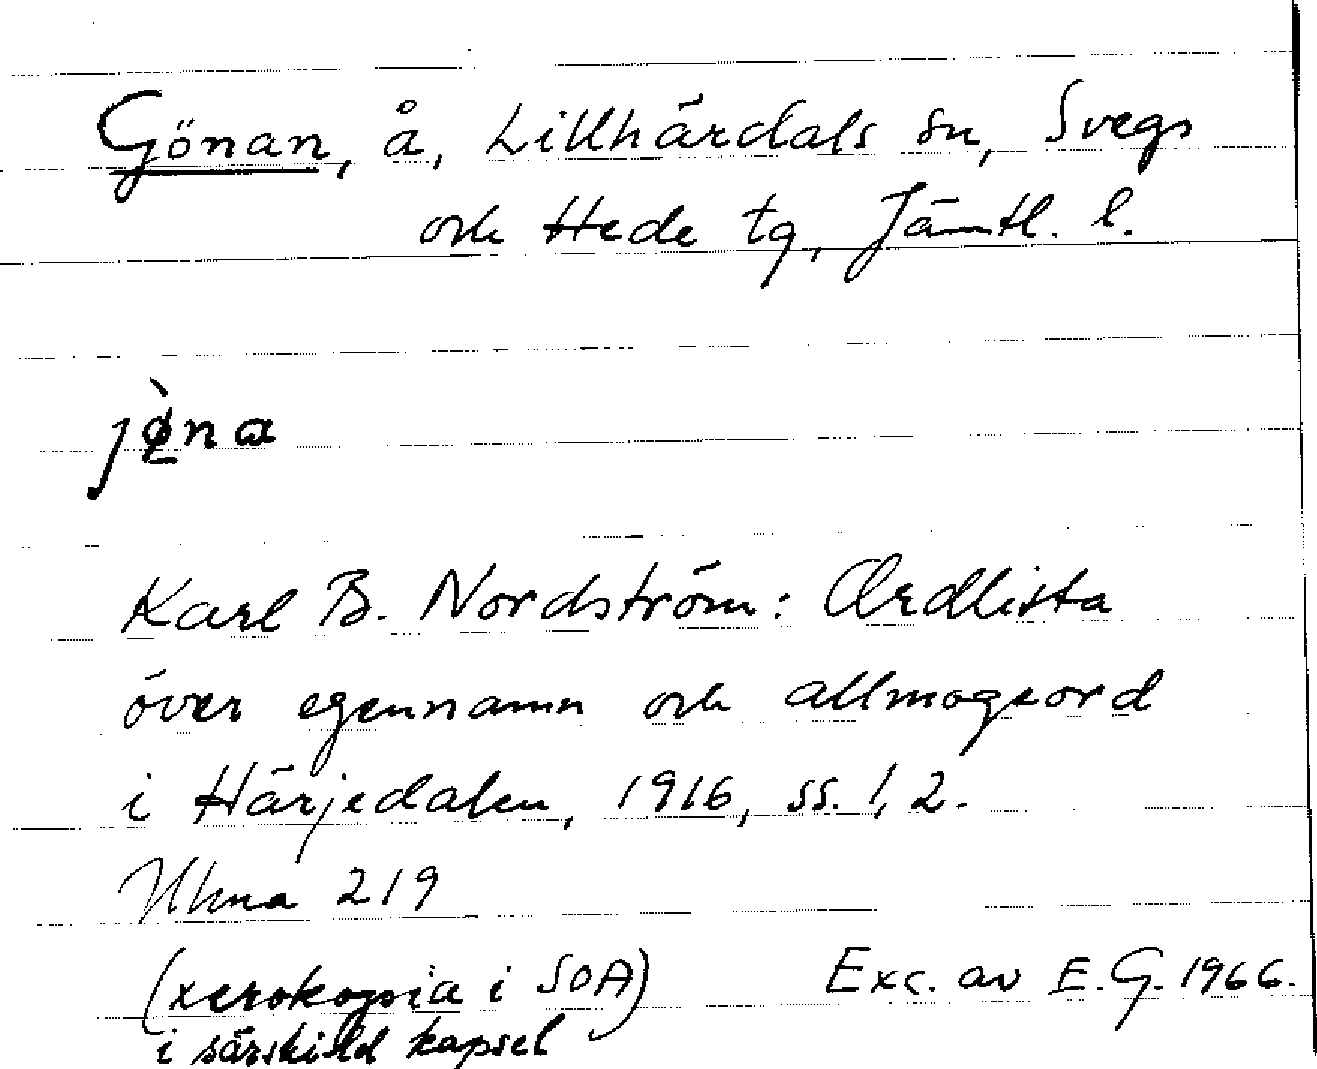 Gönan, å, Lillhärdals sn, Svegs
och Hede tg, Jämtl. l.
jø̀na
Karl B. Nordström: Ordlista
över egennamn och allmogeord
i Härjedalen, 1916, ss. 1, 2.
Ulma 219
(xerokopia i SOA) Exc. av E.G. 1966.
i särskild kapsel